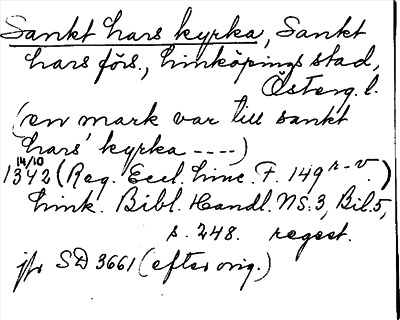 Sankt Lars kyrka, Sankt
Lars förs., Linköpings stad,
Österg. l.
(en mark var till sankt
Lars' kyrka ----)
14/10
1342 (Reg. Eccl. Linc. F. 149 r-v.)
Link. Bibl. Handl. NS:3, Bil. 5,
s. 248. regest.
jfr SD 3661 (efter orig.)